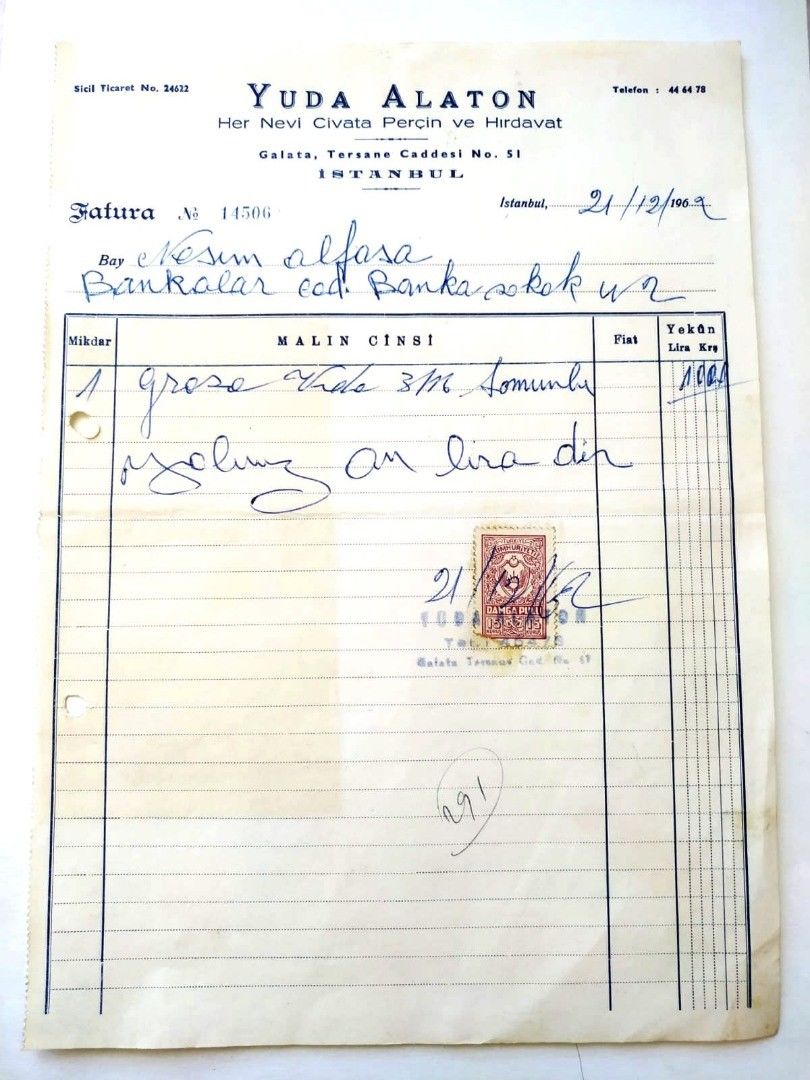 Sicil Ticaret No. 24622
YUDA ALATON
Telefon : 44 64 78
Her Nevi Civata Perçin ve Hırdavat
Galata, Tersane Caddesi No. 51
İSTANBUL
Fatura № 14506
İstanbul, 21/12/1962
Bay Nesim alfasa
Bankalar cad. Banka sokak
Mikdar MALIN CİNSİ Fiat Yekûn
Lira Krş
1 grosa Vida 3/16 Somunlu
Yalınız on lira dır
TÜRKİYE
CUMHURİYETİ
DAMGA PULU
15 15
21/12/62
YUDA ALATON
Galata Tersane Cad. No 51
291